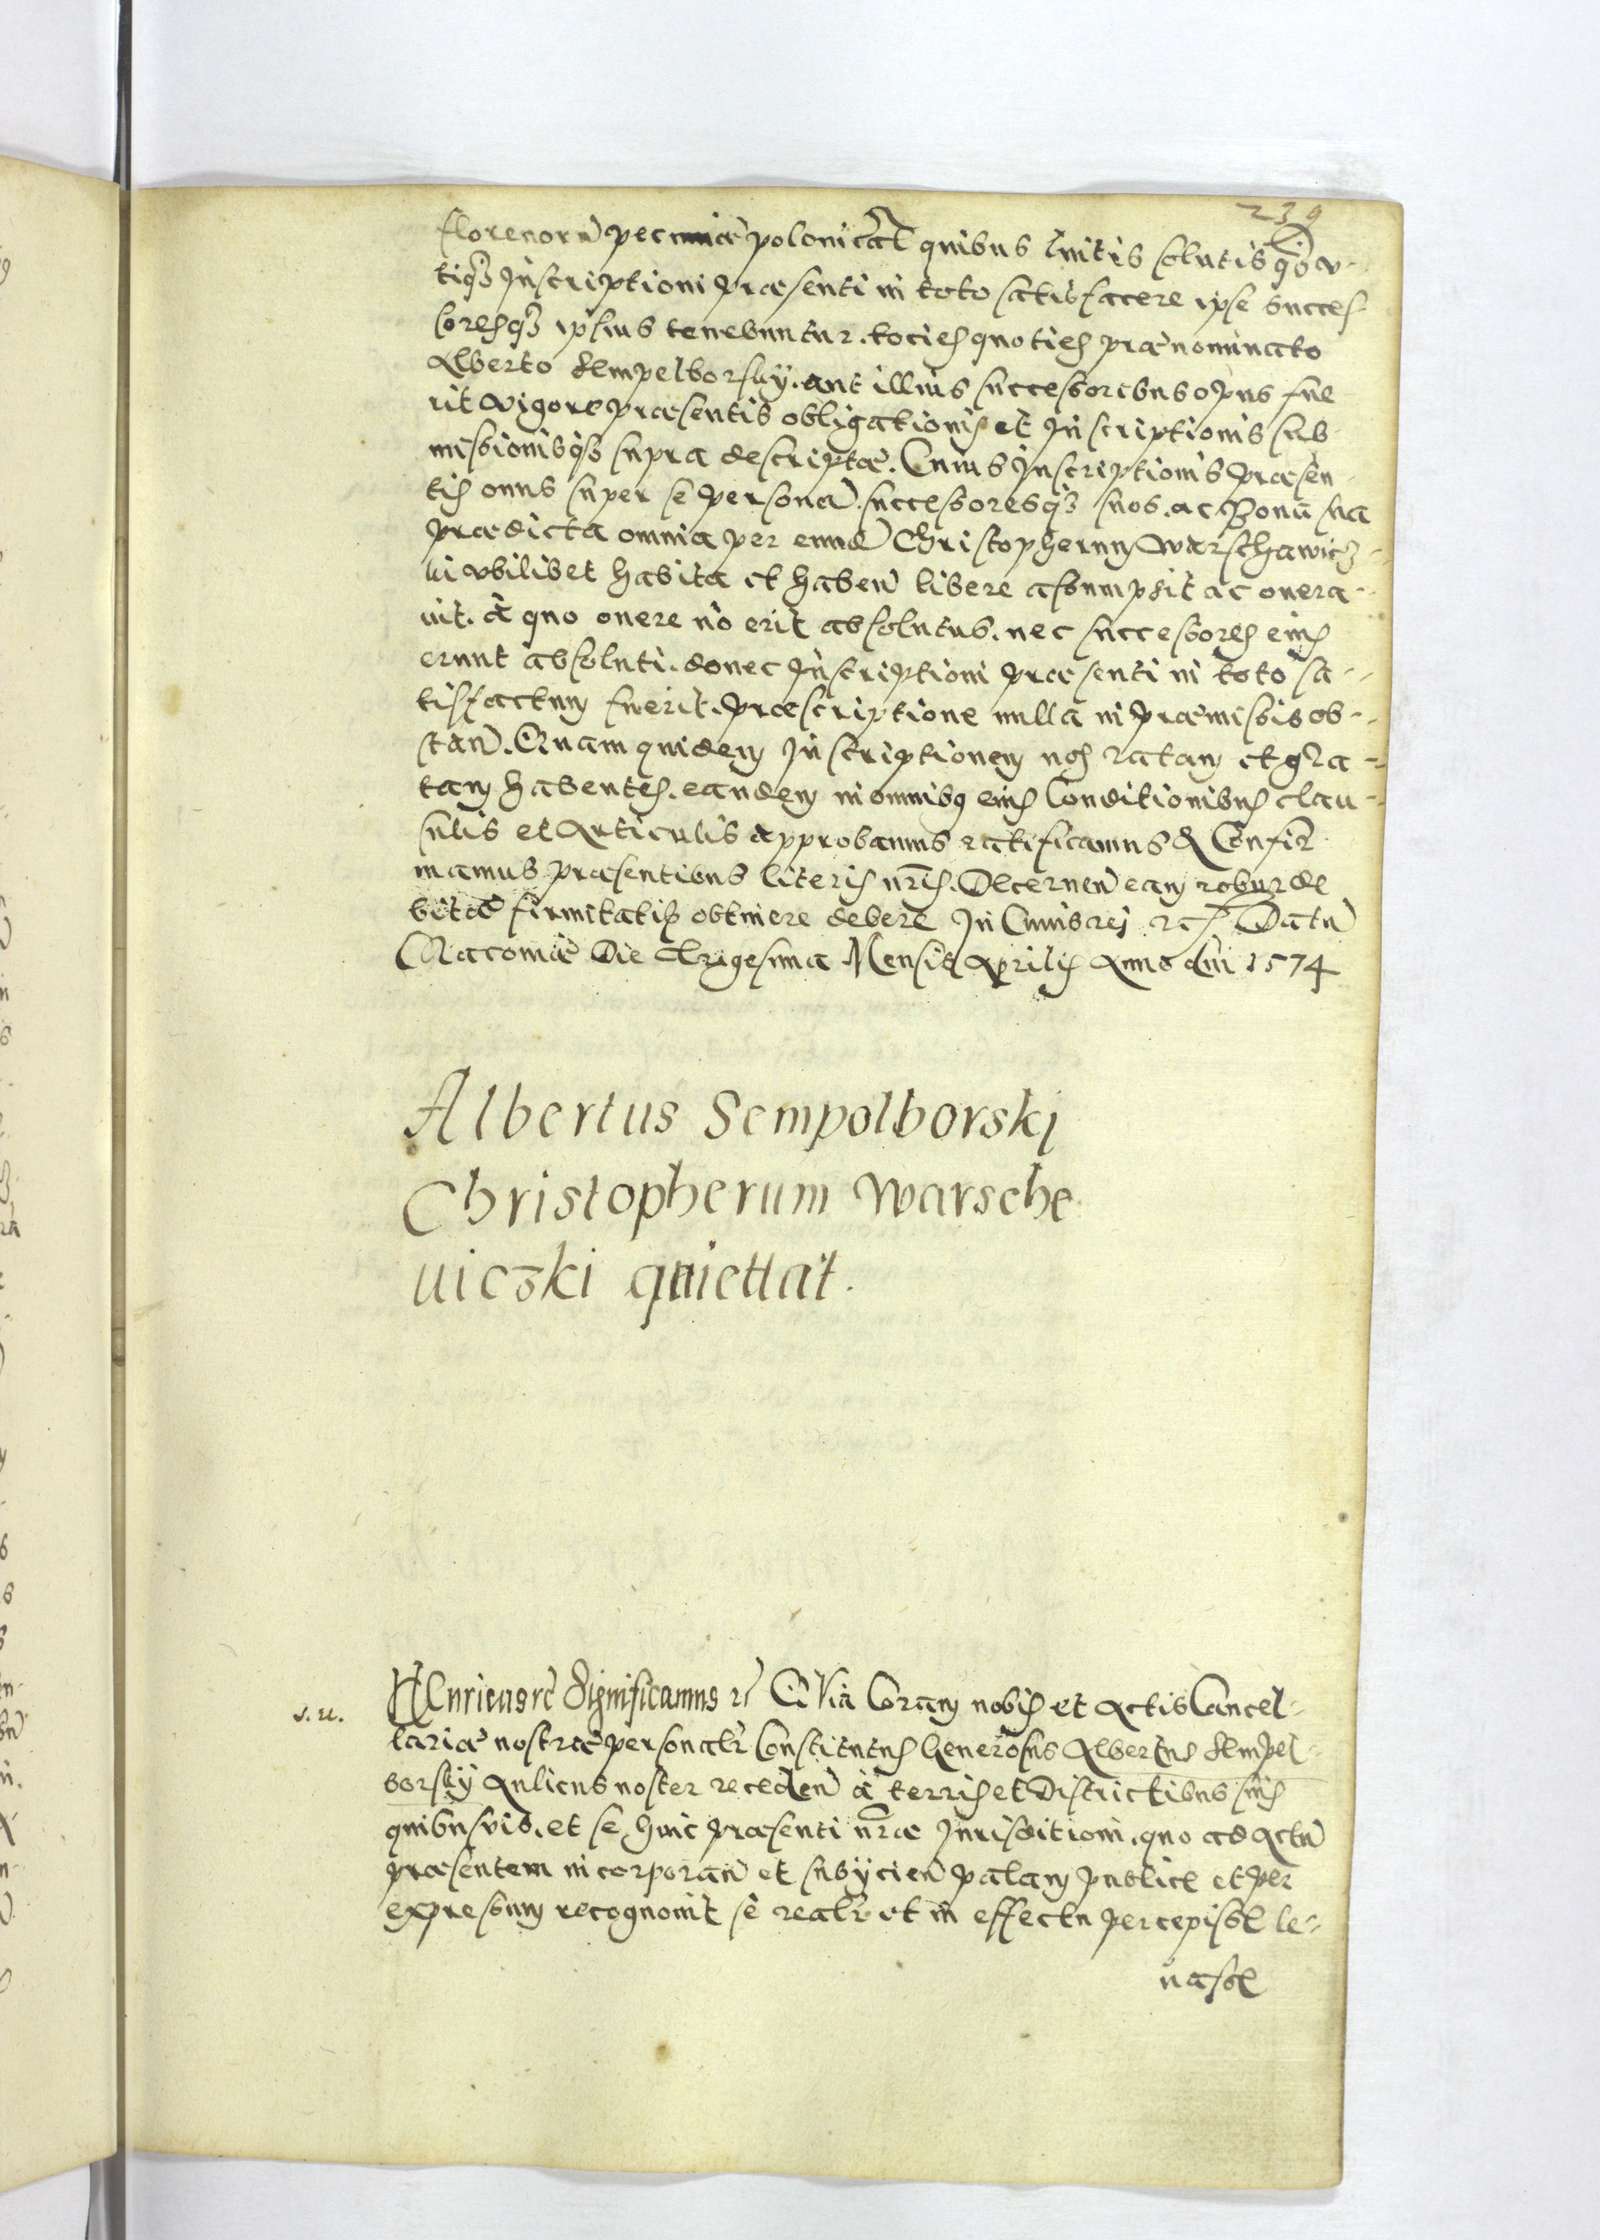 239
florenorũ pecuniæ polonicæ quibus luitis solutisq̃
tiq3 Inscriptioni præsenti in toto satisfacere ipse succes-
soresq3 ipsius tenebuntur. tocies quoties prænominato
Alberto Sempelborsky. aut illius successoribus opus fue
rit vigore præsentis obligationis et Inscriptionis sub-
missionisq3 supra descriptæ. Cuius Inscriptionis præsen-
tis onus super se personã. successoresq3 suos. ac bona sua
prædicta omnia per eund̃ Christopherum Warschawicz-
ki vbilibet habita et habeñ libere assumpsit ac onera-
uit. à quo onere nõ erit absolutus. nec successores eius
erunt absoluti. donec Inscriptioni præsenti in toto sa-
tisfactum fuerit. præscriptione nulla in præmissis ob-
stañ. Quam quidem Inscriptionem nos ratam et gra-
tam habentes. eandem in omnibus eius Conditionibus clau-
sulis et Articulis approbamus ratificamus & Confir-
mamus præsentibus literis nr̃is. Decerneñ eam robur de
bitæ firmitatis obtinere debere In Cuius rej Datũ
Cracouiæ Die Trigesima Mensis Aprilis Anno dñi 1574
Albertus Sempolborskj
Christopherum Warsche
uiczki quiettat.
s. u. HEnricus rc̃ Significamus Quia Coram nobis et Actis Cancel-
lariæ nostræ personalr̃ Constitutus Generosus Albertus Sempel-
borsky Aulicus noster recedeñ à terris et Districtibus suis
quibusuis. et se huic præsenti nr̃æ Jurisditioni. quo ad Actũ
præsentem incorporañ et subÿcieñ palam publicè et per
expressum recognouit sè realr̃ et in effectu percepisse le-
uasse